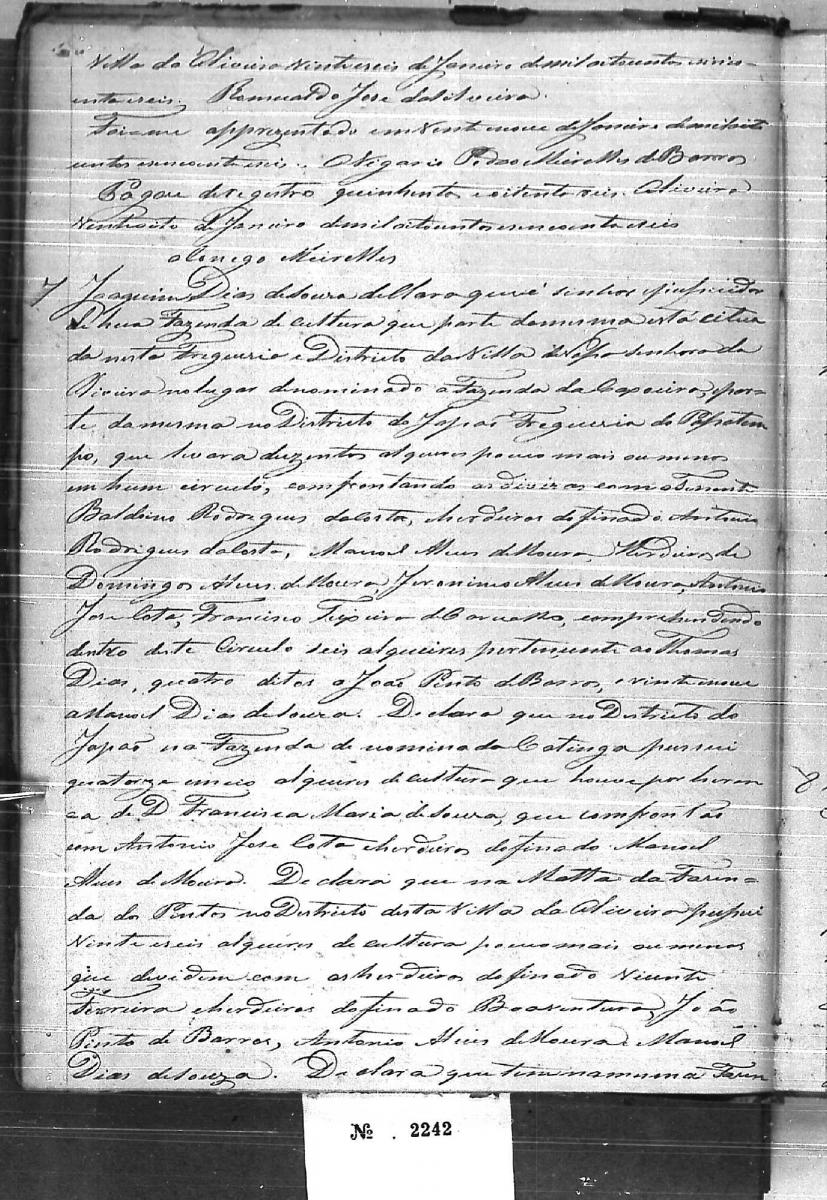 Villa da Oliveira vinte seis de Janeiro de mil oitocentos e cinco-
enta e seis. Romualdo Jose da Silveira.
Foi me apprezentado em Vinte nove de Janeiro de mil oito
centos e cincoenta e seis. O Vigario Pedro Meirelles de Barros
Pagou de registro quinhentos e oitenta reis. Oliveira
Vinte oito de Janeiro de mil oitocentos e cincoenta e seis
o Conego Meirelles
7 Joaquim Dias de Souza declara que é senhor e possuidor
de hua Fazenda de cultura que parte da mesma está citua
da nesta Freguezia e Districto da Villa de Nossa Senhora da
Oliveira no lugar denominado a Fazenda da Caxoeira, e par-
te da mesma no Districto do Japaõ Freguezia do Passatem
po, que levara duzentos alqueires pouco mais ou menos
em hum circulo, confrontando as divizas com o Tenente
Baldoino Rodrigues da Costa, e herdeiros do finado Antonio
Rodrigues da Costa, Manoel Alves de Moura, Herdeiros de
Domingos Alves de Moura, Jeronimo Alves de Moura, Antonio
Jose Cota, Francisco Teixeira de Carvalho, comprehendendo
dentro deste Circulo seis alqueires pertencente ao Thomas
Dias, quatro ditos a João Pinto de Barros, e vinte nove
a Manoel Dias de Souza. Declara que no Districto do
Japaõ na Fazenda denominada Catinga possui
quatorze e meio alqueires de cultura que houve por heran
ca de D Francisca Maria de Souza, que confrontaõ
com Antonio Jose Cota e herdeiros do finado Manoel
Alves de Moura. Declara que na Matta da Fazen-
da dos Pintos no Districto desta Villa da Oliveira possui
Vinte e seis alqueires de cultura pouco mais ou menos
que dividem com os herdeiros do finado Vicente
Ferreira e herdeiros do finado Boaventura, João
Pinto de Barros, Antonio Alves de Moura e Manoel
Dias de Souza. Declara que tem na mesma Fazen
8
Nº 2242